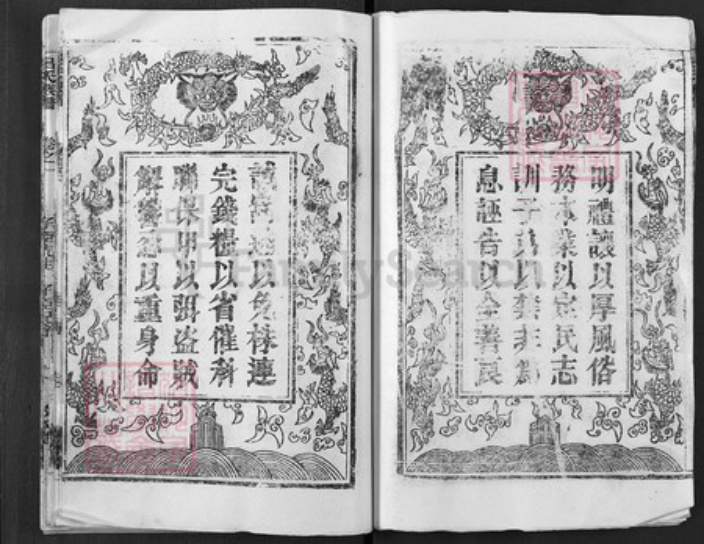 明禮讓以厚風俗
務本業以定民志
訓子弟以禁非為
息誣告以全善良
誡匿逃以免株連
完錢糧以省催科
聯保甲以弭盜賊
解讐忿以重身命
FamilySearch